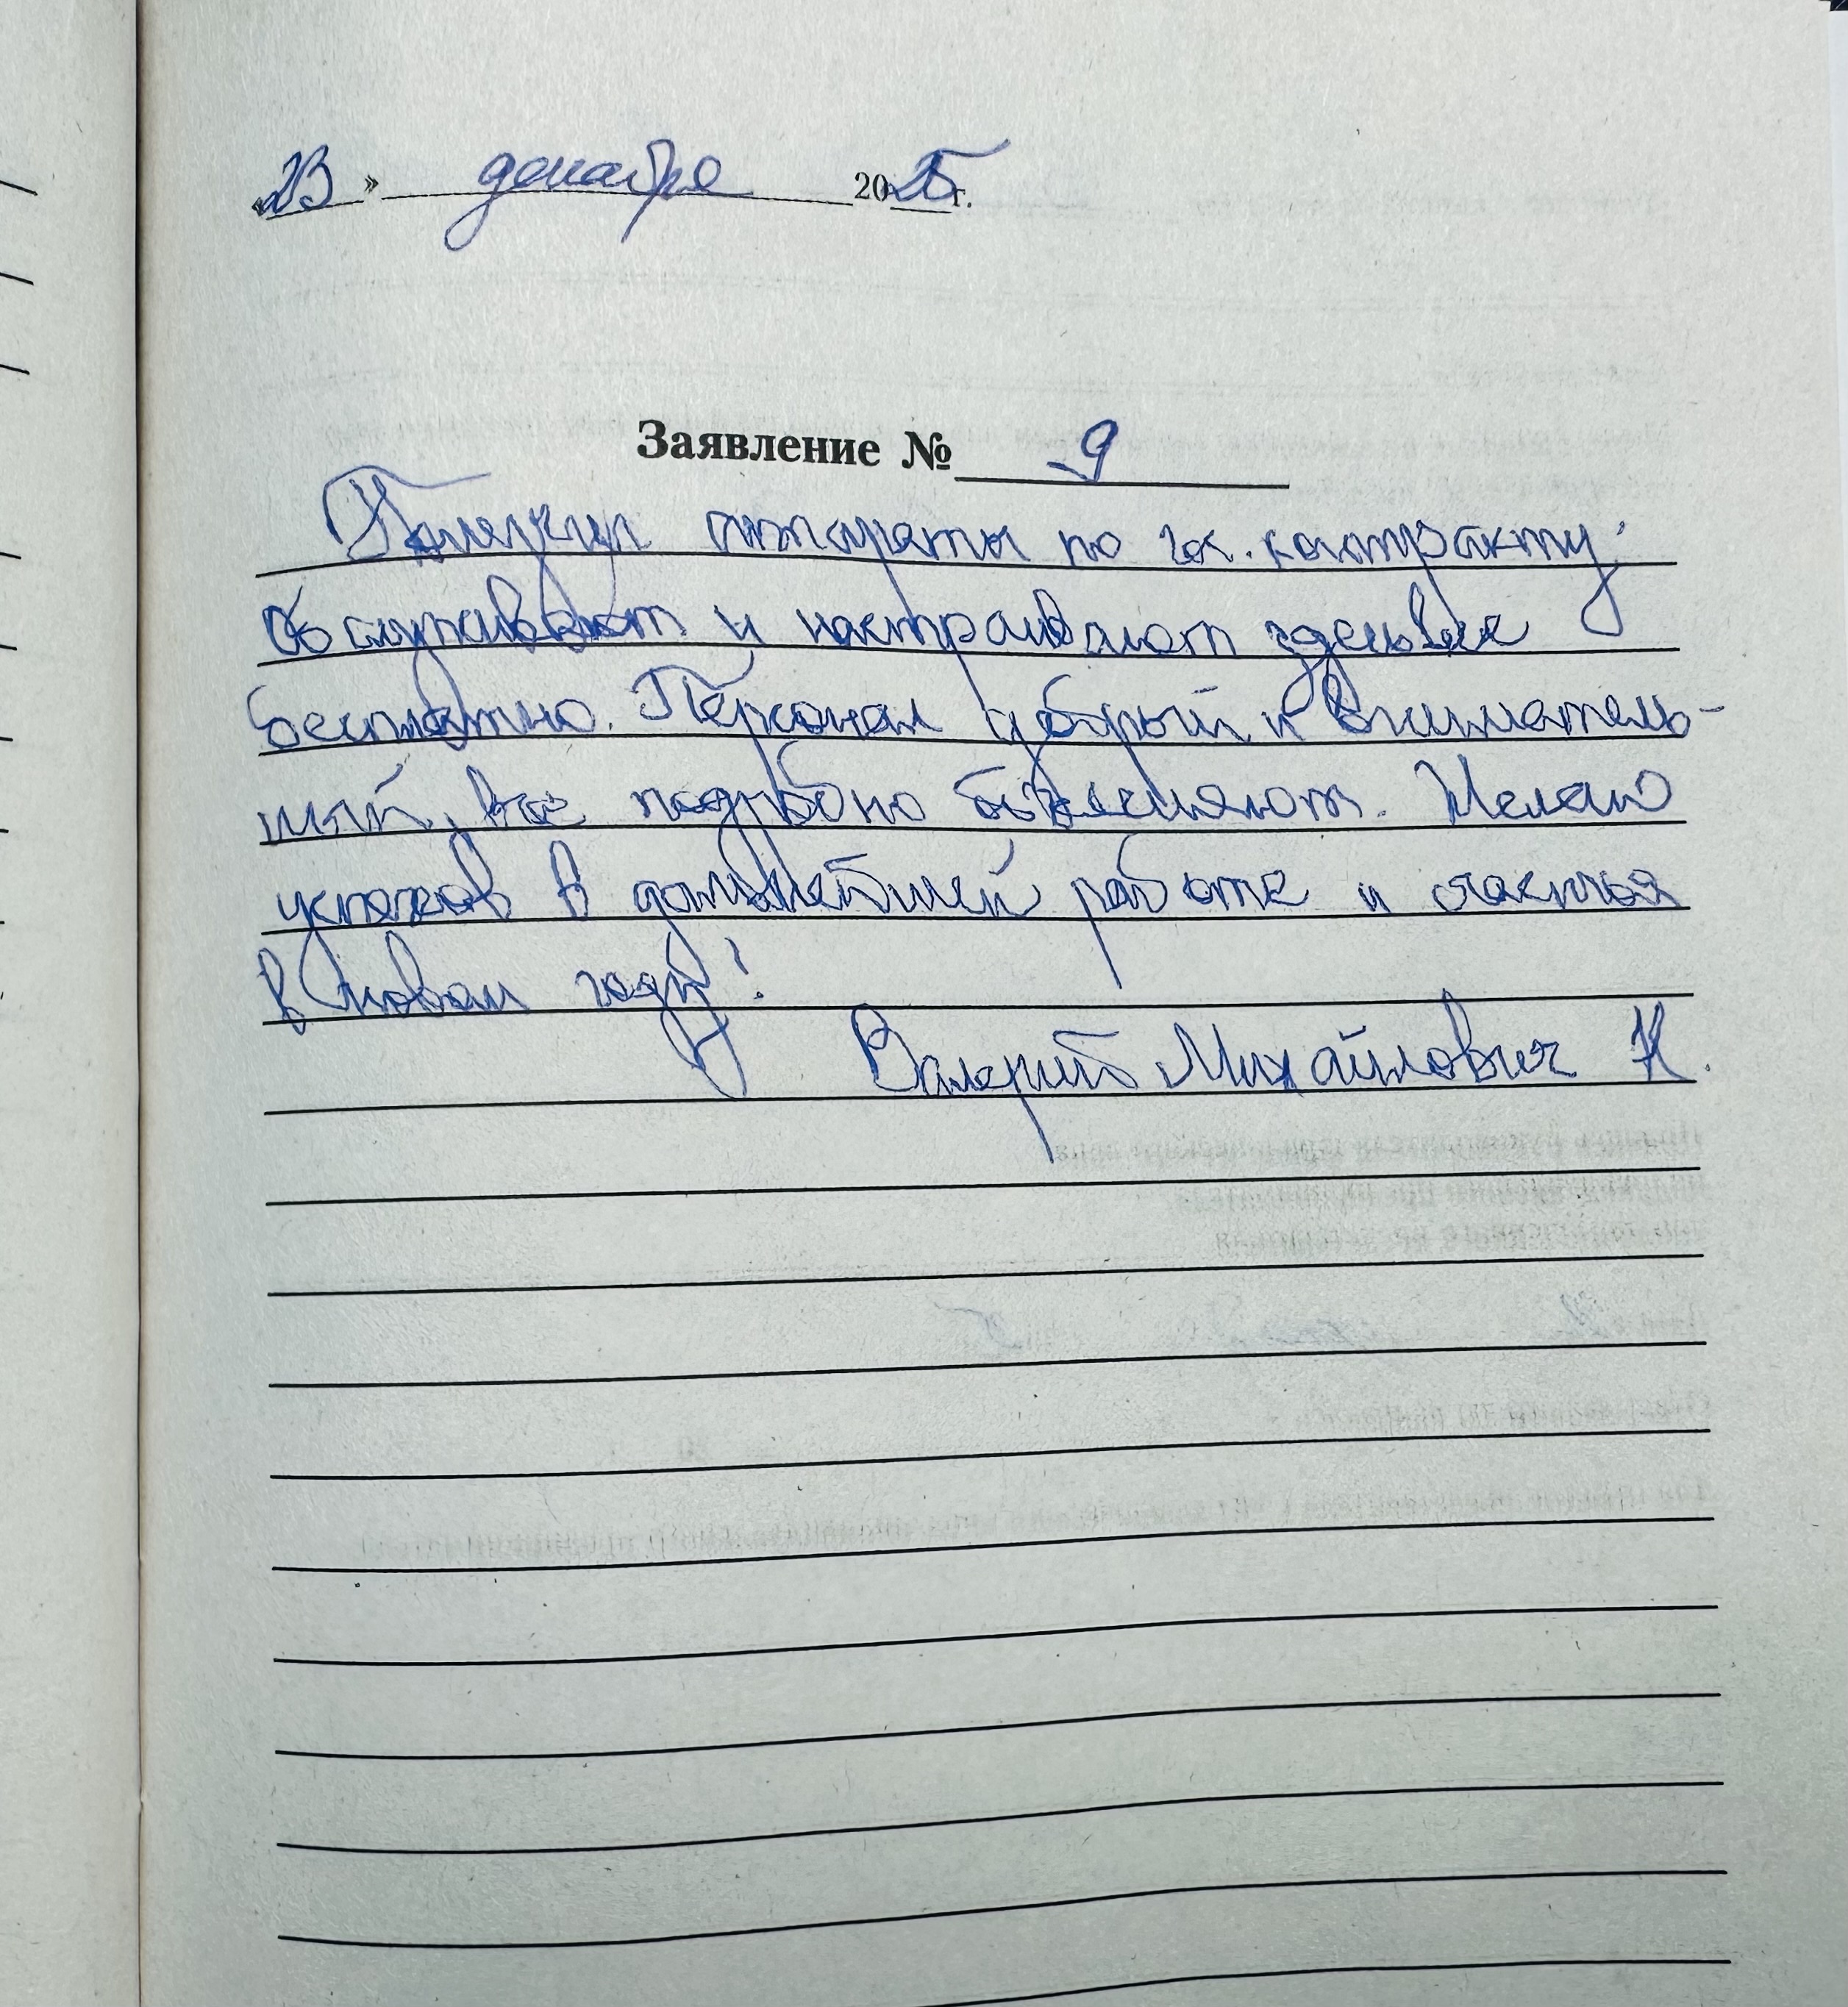 «23» декабря 2025 г.
Заявление № 9
Получил аппараты по гос. контракту.
Обслуживают и настраивают здесь же
бесплатно. Персонал добрый и вниматель-
ный, все подробно объясняют. Желаю
успехов в дальнейшей работе и счастья
в Новом году!
Валерий Михайлович К.